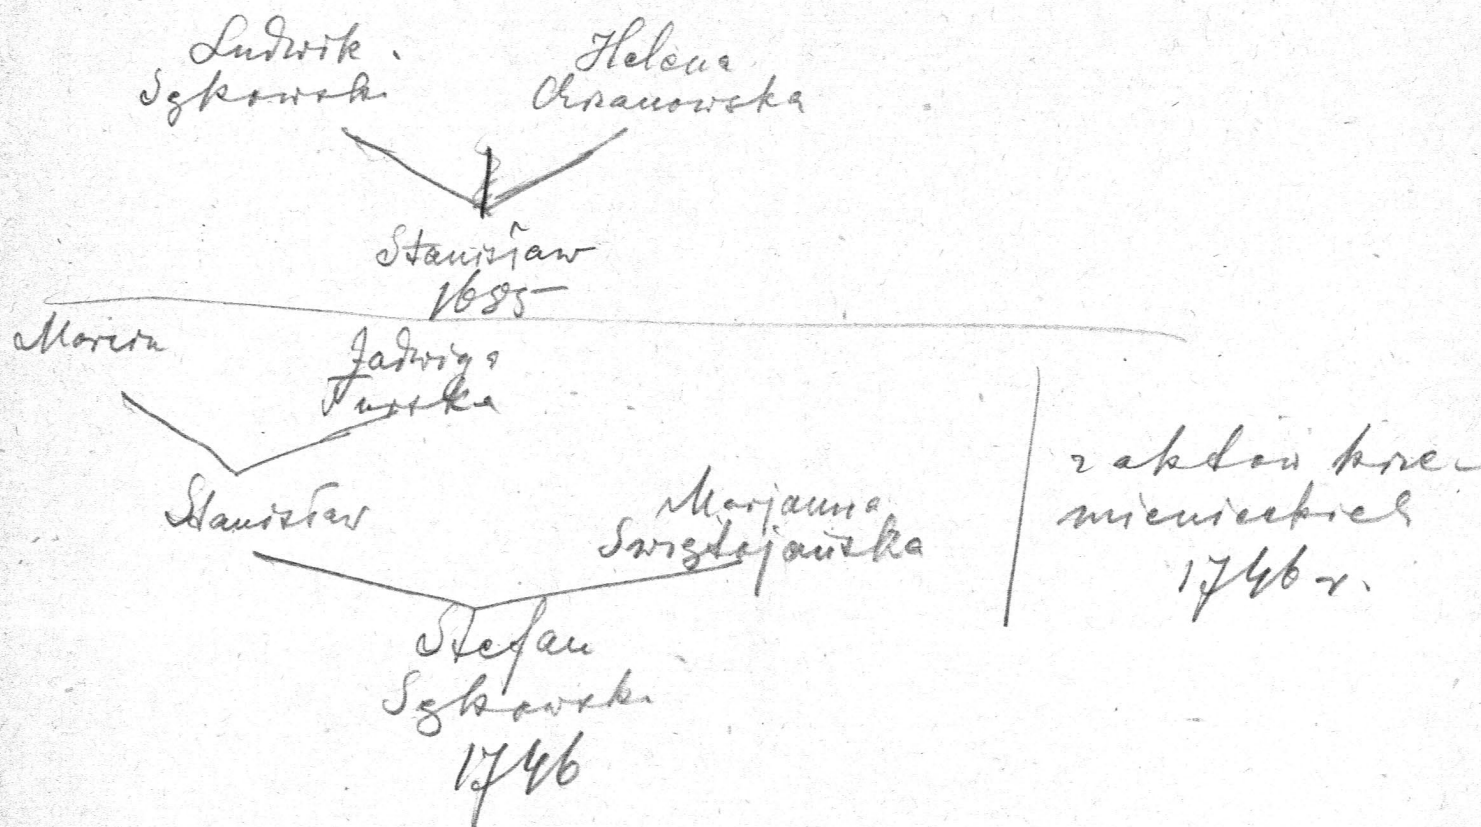 Ludwik
Sękowski
Helena
Chrzanowska
Stanisław
1685
Marcin
Jadwiga
Turska
Stanisław
Marjanna
Świętojańska
Stefan
Sękowski
1746
z aktów krze-
mienieckich
1746 r.